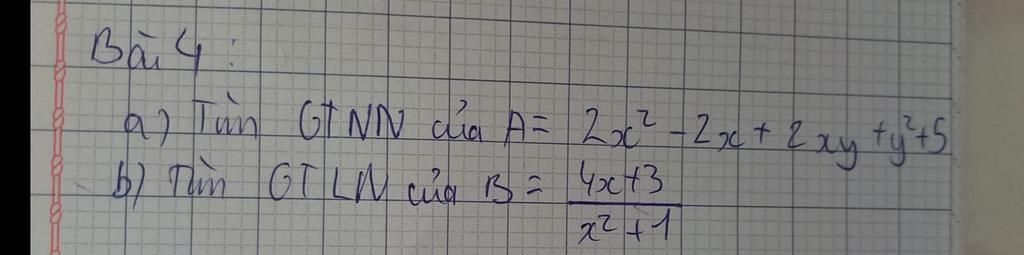 Bài 4:
a) Tìm GTNN của A = 2x² - 2x + 2xy + y² + 5
b) Tìm GTLN của B = (4x+3)/(x²+1)